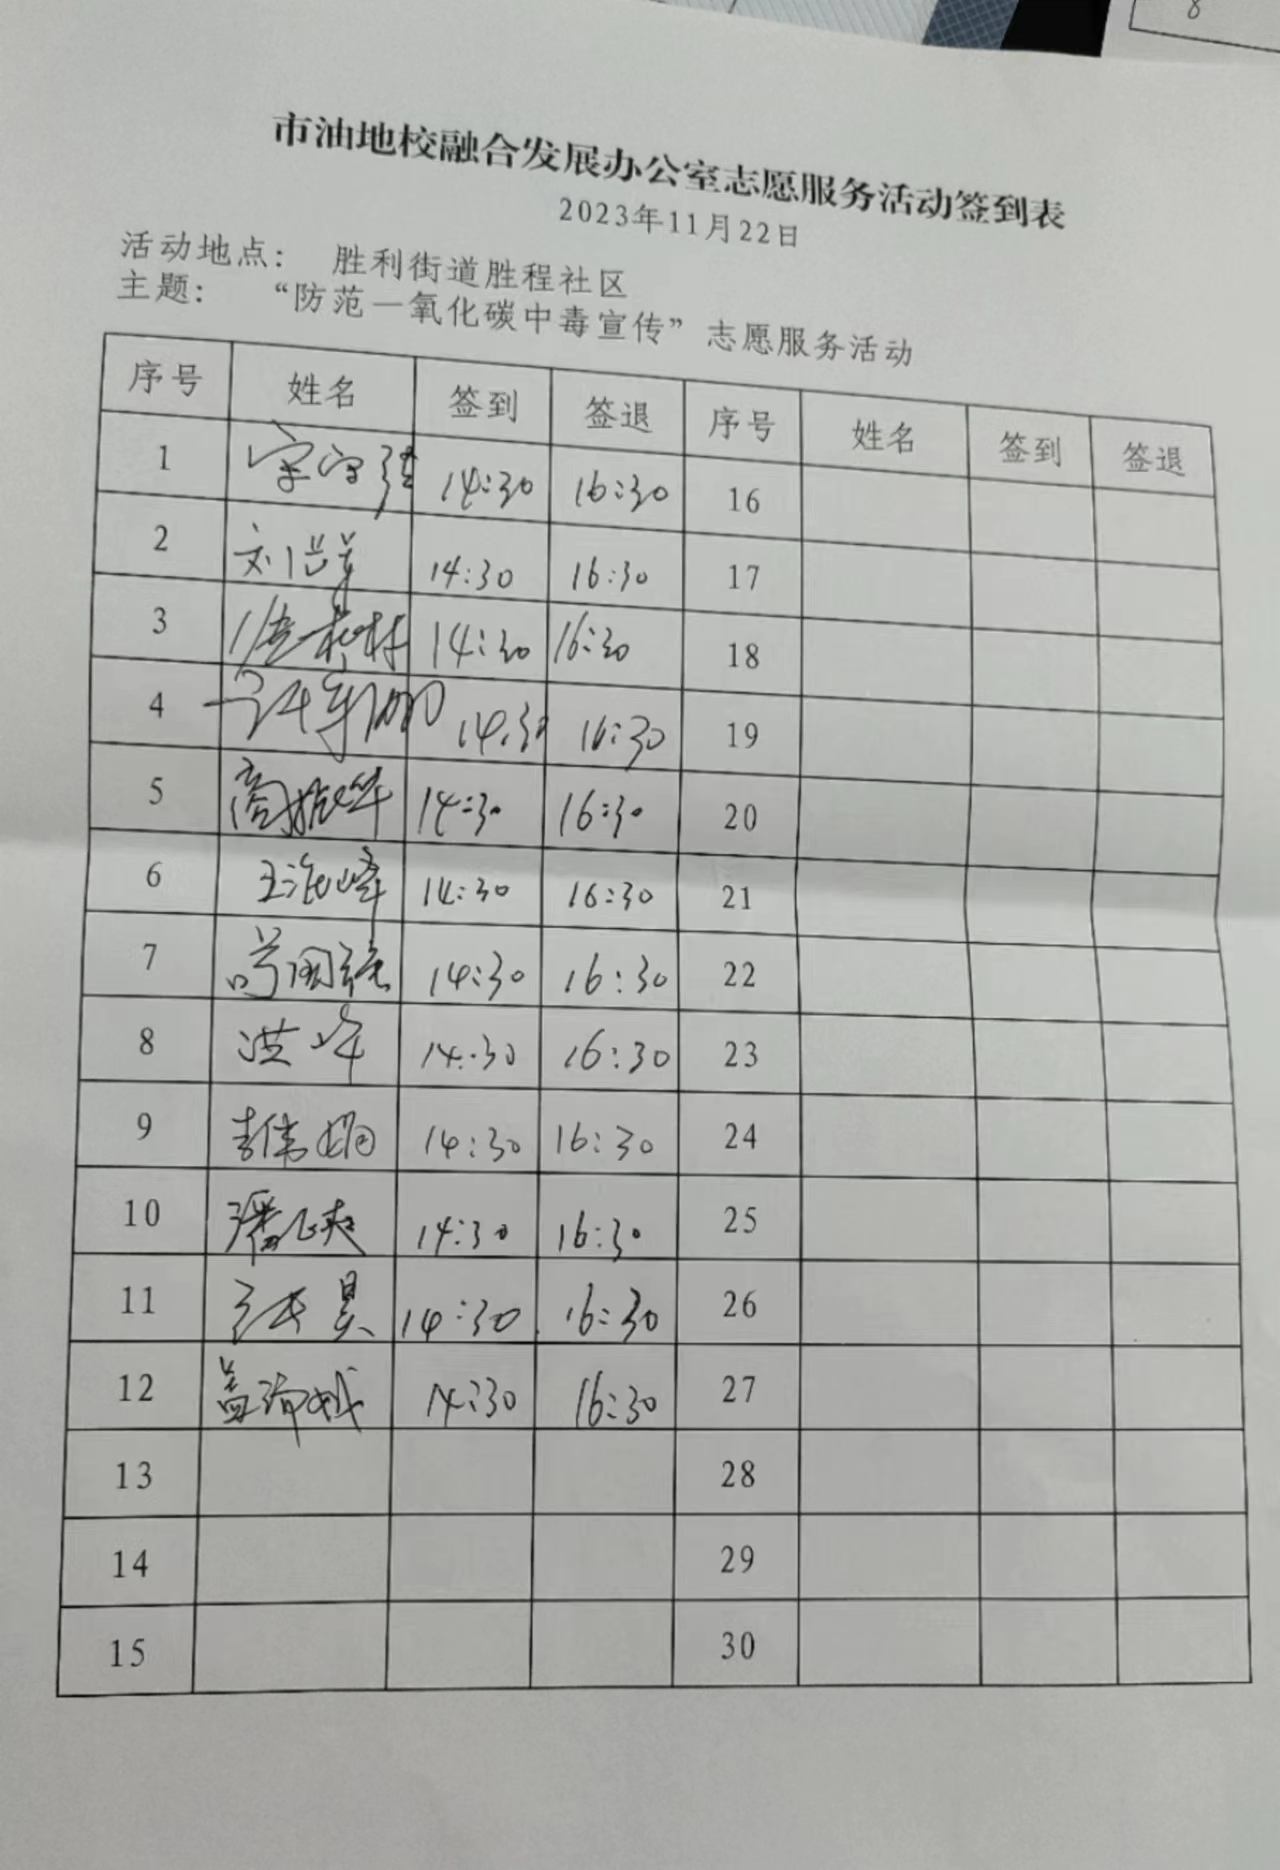 8
市油地校融合发展办公室志愿服务活动签到表
2023年11月22日
活动地点： 胜利街道胜程社区
主题： “防范一氧化碳中毒宣传”志愿服务活动
序号 姓名 签到 签退 序号 姓名 签到 签退
1 14:30 16:30 16
2 14:30 16:30 17
3 14:30 16:30 18
4 14:30 16:30 19
5 商振华 14:30 16:30 20
6 14:30 16:30 21
7 14:30 16:30 22
8 洪峰 14:30 16:30 23
9 李伟娟 14:30 16:30 24
10 潘飞爽 14:30 16:30 25
11 张昊 14:30 16:30 26
12 14:30 16:30 27
13 28
14 29
15 30